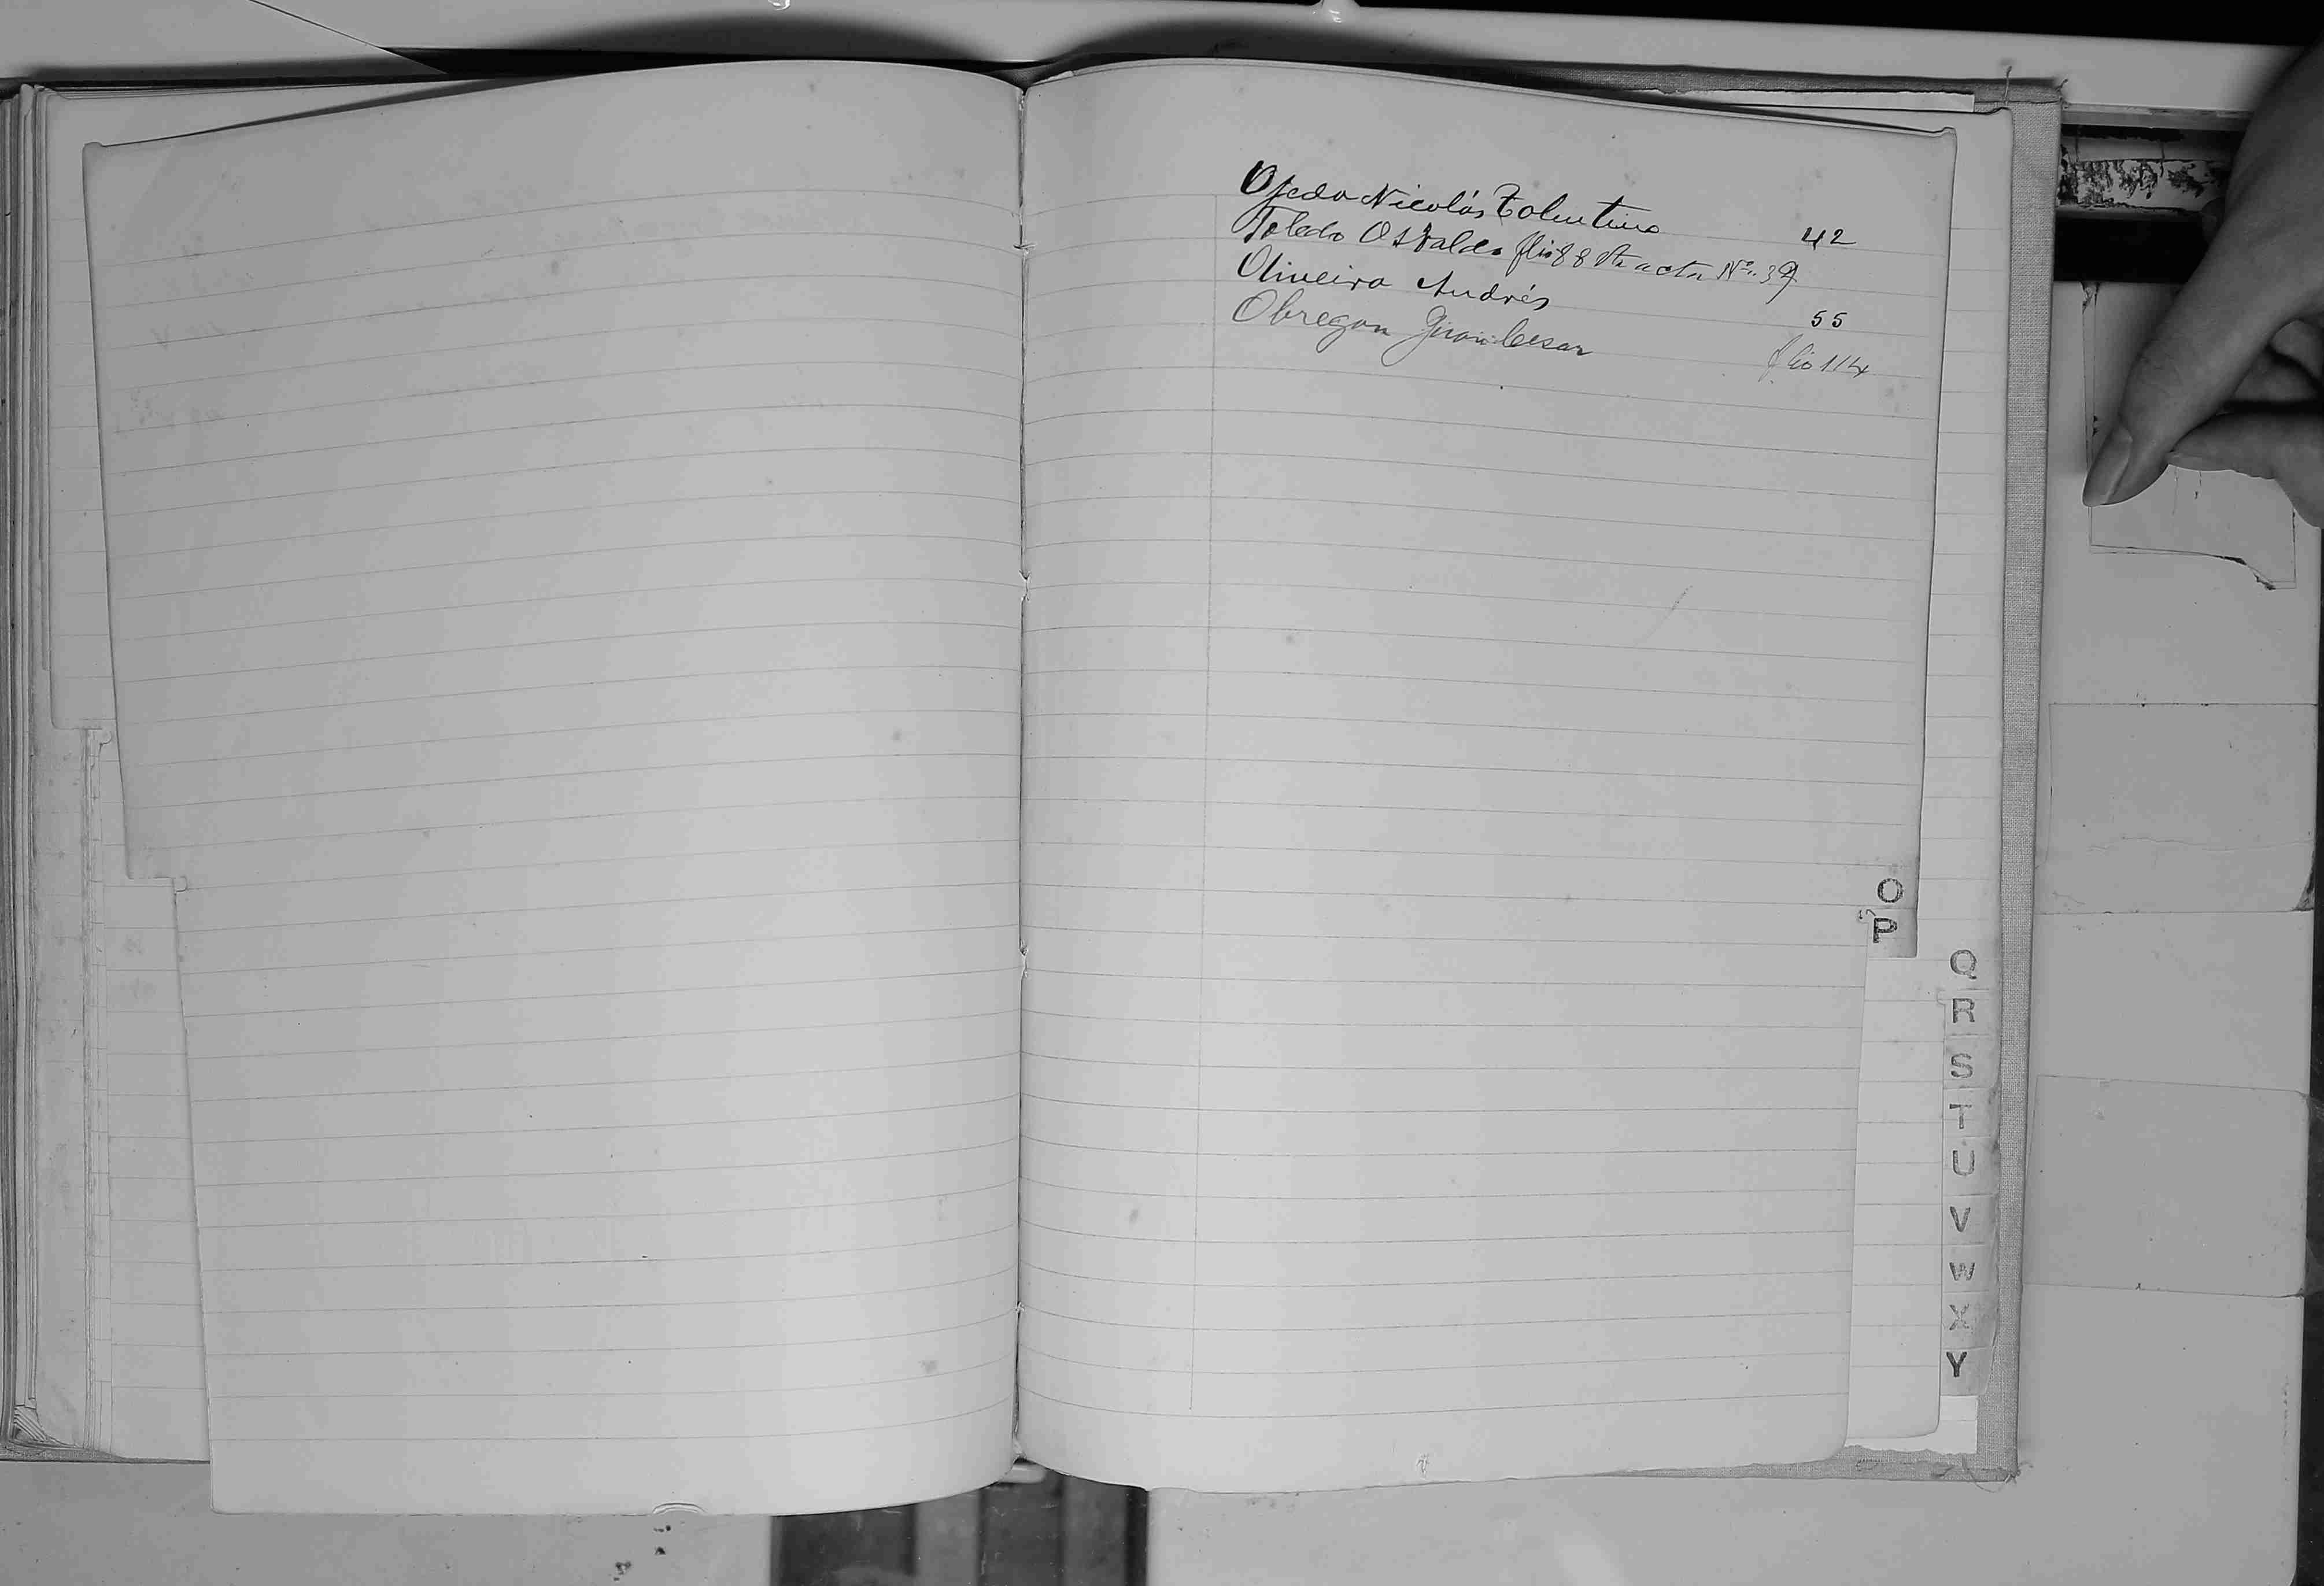 Ojeda Nicolás Tolentino 42
Toledo Osvaldo flio 88 Vta acta Nº. 39
Oliveira Andrés 55
Obregon Juan Cesar flio 114
O
P
Q
R
S
T
U
V
W
X
Y